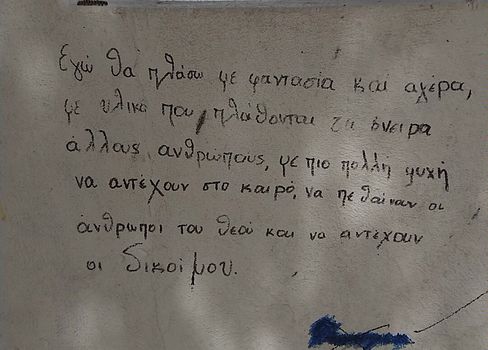 Εγώ θα πλάσω με φαντασία και αγέρα,
με υλικό που πλάθονται τα όνειρα
άλλους ανθρώπους, με πιο πολλή ψυχή
να αντέχουν στο καιρό, να πεθαίναν οι
άνθρωποι του θεού και να αντέχουν
οι δικοί μου.